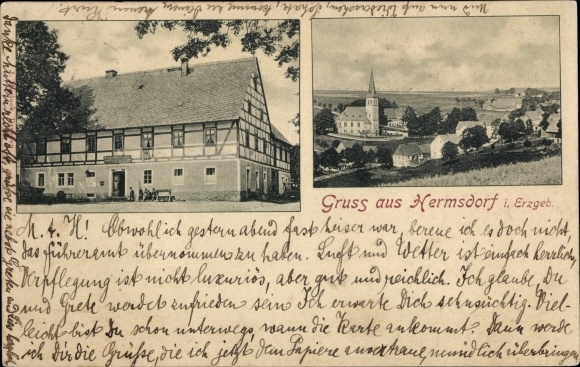 Und nun auf Wiedersehen Schatz, komme zu Deinem
Gruss aus Hermsdorf i. Erzgeb.
M. l. H! Obwohlich gestern abend fast heiser war, bereue ich es doch nicht,
das führeramt übernommen zu haben. Luft und Wetter ist einfach herrlich,
Verpflegung ist nicht luxuriös, aber gut und reichlich. Ich glaube, Du
und Grete werdet zufrieden sein Ich erwarte Dich sehnsüchtig. Viel-
leicht bist Du schon unterwegs wann die Karte ankommt. Dann werde
ich Dir die Grüße, die ich jetzt dem Papiere anvertraue, mündlich überbringen